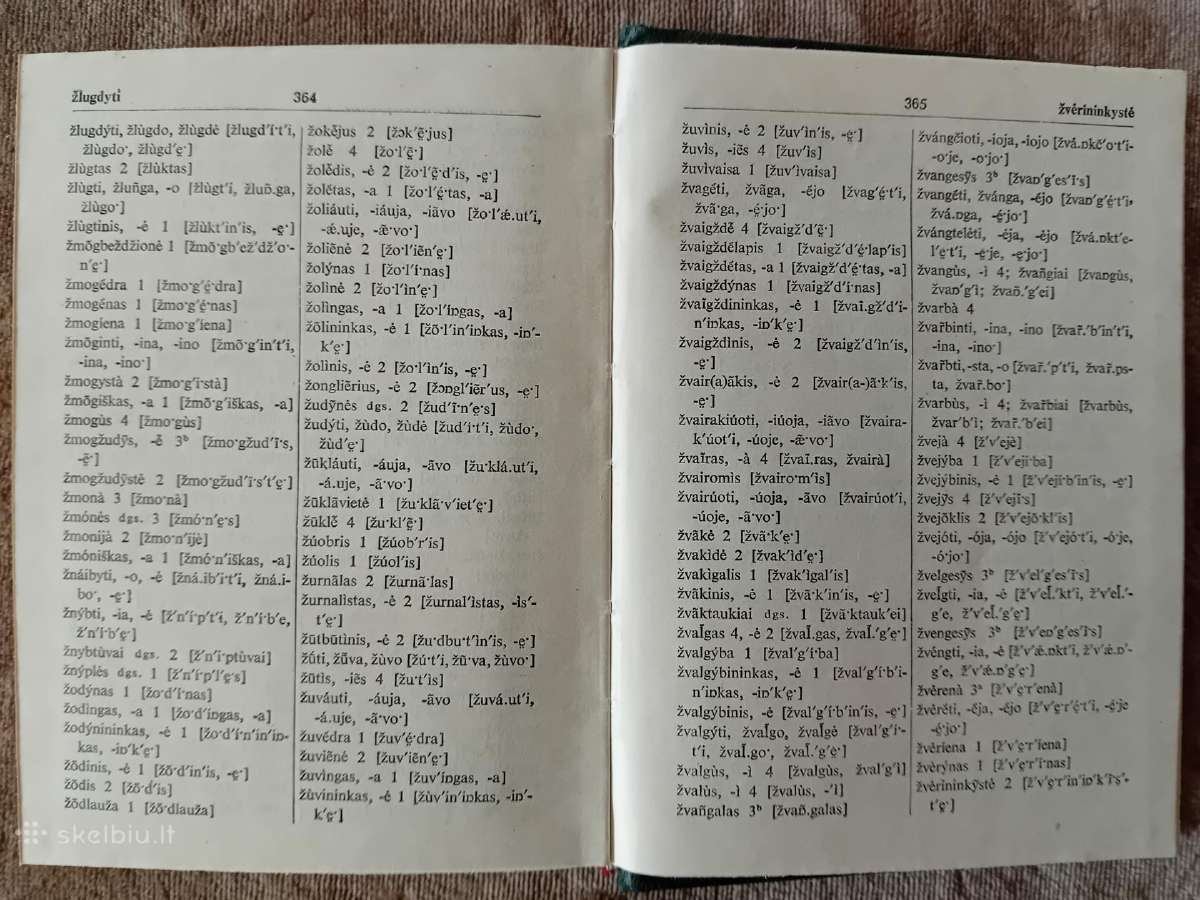 žlugdyti 364
žlugdýti, žlùgdo, žlùgdė [žlugd′í·t′i,
žlùgdo·, žlùgd′ẹ·]
žlùgtas 2 [žlùktas]
žlùgti, žluñga, -o [žlùgt′i, žluñ.ga,
žlùgo·]
žlùgtinis, -ė 1 [žlùkt′in′is, -ẹ·]
žmõgbeždžionė 1 [žmõ·gb′ež′dž′o·-
n′ẹ·]
žmogėdra 1 [žmo·g′ẹ́·dra]
žmogėnas 1 [žmo·g′ẹ́·nas]
žmogiena 1 [žmo·g′íena]
žmõginti, -ina, -ino [žmõ·g′in′t′i,
-ina, -ino·]
žmogystà 2 [žmo·g′i·stà]
žmõgiškas, -a 1 [žmõ·g′iškas, -a]
žmogùs 4 [žmo·gùs]
žmogžudỹs, -ė̃ 3ᵇ [žmo·gžud′ĩ·s,
-ẹ̃·]
žmogžudỹstė 2 [žmo·gžud′ĩ·s′t′ẹ·]
žmonà 3 [žmo·nà]
žmónės dgs. 3 [žmó·n′ẹ·s]
žmonijà 2 [žmo·n′ijè]
žmóniškas, -a 1 [žmó·n′iškas, -a]
žnáibyti, -o, -ė [žná.ib′i·t′i, žná.i-
bo·, -ẹ·]
žnýbti, -ia, -ė [ž′n′í·p′t′i, ž′n′í·b′e,
ž′n′í·b′ẹ·]
žnybtùvai dgs. 2 [ž′n′i·ptùvai]
žnýplės dgs. 1 [ž′n′í·p′l′ẹ·s]
žodýnas 1 [žo·d′í·nas]
žodìngas, -a 1 [žo·d′íŋgas, -a]
žodýnininkas, -ė 1 [žo·d′í·n′in′iŋ-
kas, -iŋ′k′ẹ·]
žõdinis, -ė 1 [žõ·d′in′is, -ẹ·]
žõdis 2 [žõ·d′is]
žõdlauža 1 [žõ·dlauža]
žokėjus 2 [žɔk′ẹ̃·jus]
žolė̃ 4 [žo·l′ẹ̃·]
žolė̃dis, -ė 2 [žo·l′ẹ̃·d′is, -ẹ·]
žolė́tas, -a 1 [žo·l′ẹ́·tas, -a]
žoliáuti, -iáuja, -iãvo [žo·l′ǽ.ut′i,
-ǽ.uje, -æ̃·vo·]
žoliẽnė 2 [žo·l′iẽn′ẹ·]
žolýnas 1 [žo·l′í·nas]
žolìnė 2 [žo·l′ìn′ẹ·]
žolìngas, -a 1 [žo·l′íŋgas, -a]
žõlininkas, -ė 1 [žõ·l′in′iŋkas, -iŋ′-
k′ẹ·]
žolìnis, -ė 2 [žo·l′ìn′is, -ẹ·]
žongliẽrius, -ė 2 [žɔŋgl′iẽr′us, -ẹ·]
žudỹnės dgs. 2 [žud′ĩ·n′ẹ·s]
žudýti, žùdo, žùdė [žud′í·t′i, žùdo·,
žùd′ẹ·]
žūkláuti, -áuja, -ãvo [žu·klá.ut′i,
-á.uje, -ã·vo·]
žūklãvietė 1 [žu·klã·v′iet′ẹ·]
žūklė̃ 4 [žu·kl′ẹ̃·]
žúobris 1 [žúob′r′is]
žúolis 1 [žúol′is]
žurnãlas 2 [žurnã·las]
žurnalìstas, -ė 2 [žurnal′ìstas, -ìs′-
t′ẹ·]
žūtbūtìnis, -ė 2 [žu·dbu·t′ìn′is, -ẹ·]
žū́ti, žū̃va, žùvo [žú·t′i, žũ·va, žùvo·]
žūtìs, -iẽs 4 [žu·t′ìs]
žuváuti, -áuja, -ãvo [žuvá.ut′i,
-á.uje, -ã·vo·]
žuvė́dra 1 [žuv′ẹ́·dra]
žuviẽnė 2 [žuv′iẽn′ẹ·]
žuvìngas, -a 1 [žuv′íŋgas, -a]
žùvininkas, -ė 1 [žùv′in′iŋkas, -iŋ′-
k′ẹ·]
365 žvėrininkystė
žuvìnis, -ė 2 [žuv′ìn′is, -ẹ·]
žuvìs, -iẽs 4 [žuv′ìs]
žuvìvaisa 1 [žuv′ìvaisa]
žvagė́ti, žvãga, -ė́jo [žvag′ẹ́·t′i,
žvã·ga, -ẹ́·jo·]
žvaigždė̃ 4 [žvaigž′d′ẹ̃·]
žvaigždė́lapis 1 [žvaigž′d′ẹ́·lap′is]
žvaigždė́tas, -a 1 [žvaigž′d′ẹ́·tas, -a]
žvaigždýnas 1 [žvaigž′d′í·nas]
žvaĩgždininkas, -ė 1 [žvaĩ.gž′d′i-
n′iŋkas, -iŋ′k′ẹ·]
žvaigždìnis, -ė 2 [žvaigž′d′ìn′is,
-ẹ·]
žvair(a)ãkis, -ė 2 [žvair(a-)ã·k′is,
-ẹ·]
žvairakiúoti, -iúoja, -iãvo [žvaira-
k′úot′i, -úoje, -æ̃·vo·]
žvaĩras, -à 4 [žvaĩ.ras, žvairà]
žvairomìs [žvairo·m′ìs]
žvairúoti, -úoja, -ãvo [žvairúot′i,
-úoje, -ã·vo·]
žvãkė 2 [žvã·k′ẹ·]
žvakìdė 2 [žvak′ìd′ẹ·]
žvakìgalis 1 [žvak′ìgal′is]
žvãkinis, -ė 1 [žvã·k′in′is, -ẹ·]
žvãktaukiai dgs. 1 [žvã·ktauk′ei]
žval̃gas 4, -ė 2 [žval̃.gas, žval̃.′g′ẹ·]
žvalgýba 1 [žval′g′í·ba]
žvalgýbininkas, -ė 1 [žval′g′í·b′i-
n′iŋkas, -iŋ′k′ẹ·]
žvalgýbinis, -ė 1 [žval′g′í·b′in′is, -ẹ·]
žvalgýti, žval̃go, žval̃gė [žval′g′í·-
t′i, žval̃.go·, žval̃.′g′ẹ·]
žvalgùs, -ì 4 [žvalgùs, žval′g′ì]
žvalùs, -ì 4 [žvalùs, -′ì]
žvañgalas 3ᵇ [žvañ.galas]
žvángčioti, -ioja, -iojo [žvá.ŋkč′o·t′i-
-o·je, -o·jo·]
žvangesỹs 3ᵇ [žvaŋ′g′es′ĩ·s]
žvangė́ti, žvánga, -ė́jo [žvaŋ′g′ẹ́·t′i,
žvá.ŋga, -ẹ́·jo·]
žvángtelėti, -ėja, -ėjo [žvá.ŋkt′e-
l′ẹ·t′i, -ẹ·je, -ẹ·jo·]
žvangùs, -ì 4; žvañgiai [žvaŋgùs,
žvaŋ′g′ì; žvañ.′g′ei]
žvarbà 4
žvar̃binti, -ina, -ino [žvar̃.′b′in′t′i,
-ina, -ino·]
žvar̃bti,-sta, -o [žvar̃.′p′t′i, žvar̃.ps-
ta, žvar̃.bo·]
žvarbùs, -ì 4; žvar̃biai [žvarbùs,
žvar′b′ì; žvar̃.′b′ei]
žvejà 4 [ž′v′ejè]
žvejýba 1 [ž′v′ejí·ba]
žvejýbinis, -ė 1 [ž′v′ejí·b′in′is, -ẹ·]
žvejỹs 4 [ž′v′ejĩ·s]
žvejõklis 2 [ž′v′ejõ·kl′is]
žvejóti, -ója, -ójo [ž′v′ejó·t′i, -ó·je,
-ó·jo·]
žvelgesỹs 3ᵇ [ž′v′el′g′es′ĩ·s]
žvel̃gti, -ia, -ė [ž′v′el̃.′kt′i, ž′v′el̃.′-
g′e, ž′v′el̃.′g′ẹ·]
žvengesỹs 3ᵇ [ž′v′eŋ′g′es′ĩ·s]
žvéngti, -ia, -ė [ž′v′ǽ.ŋkt′i, ž′v′ǽ.ŋ′-
g′e, ž′v′ǽ.ŋ′g′ẹ·]
žvėrenà 3ᵃ [ž′v′ẹ·r′enà]
žvėrė́ti, -ė́ja, -ė́jo [ž′v′ẹ·r′ẹ́·t′i, -ẹ́·je
-ẹ́·jo·]
žvėríena 1 [ž′v′ẹ·r′íena]
žvėrýnas 1 [ž′v′ẹ·r′í·nas]
žvėrininkỹstė 2 [ž′v′ẹ·r′in′iŋ′k′ĩ·s′-
t′ẹ·]
skelbiu.lt